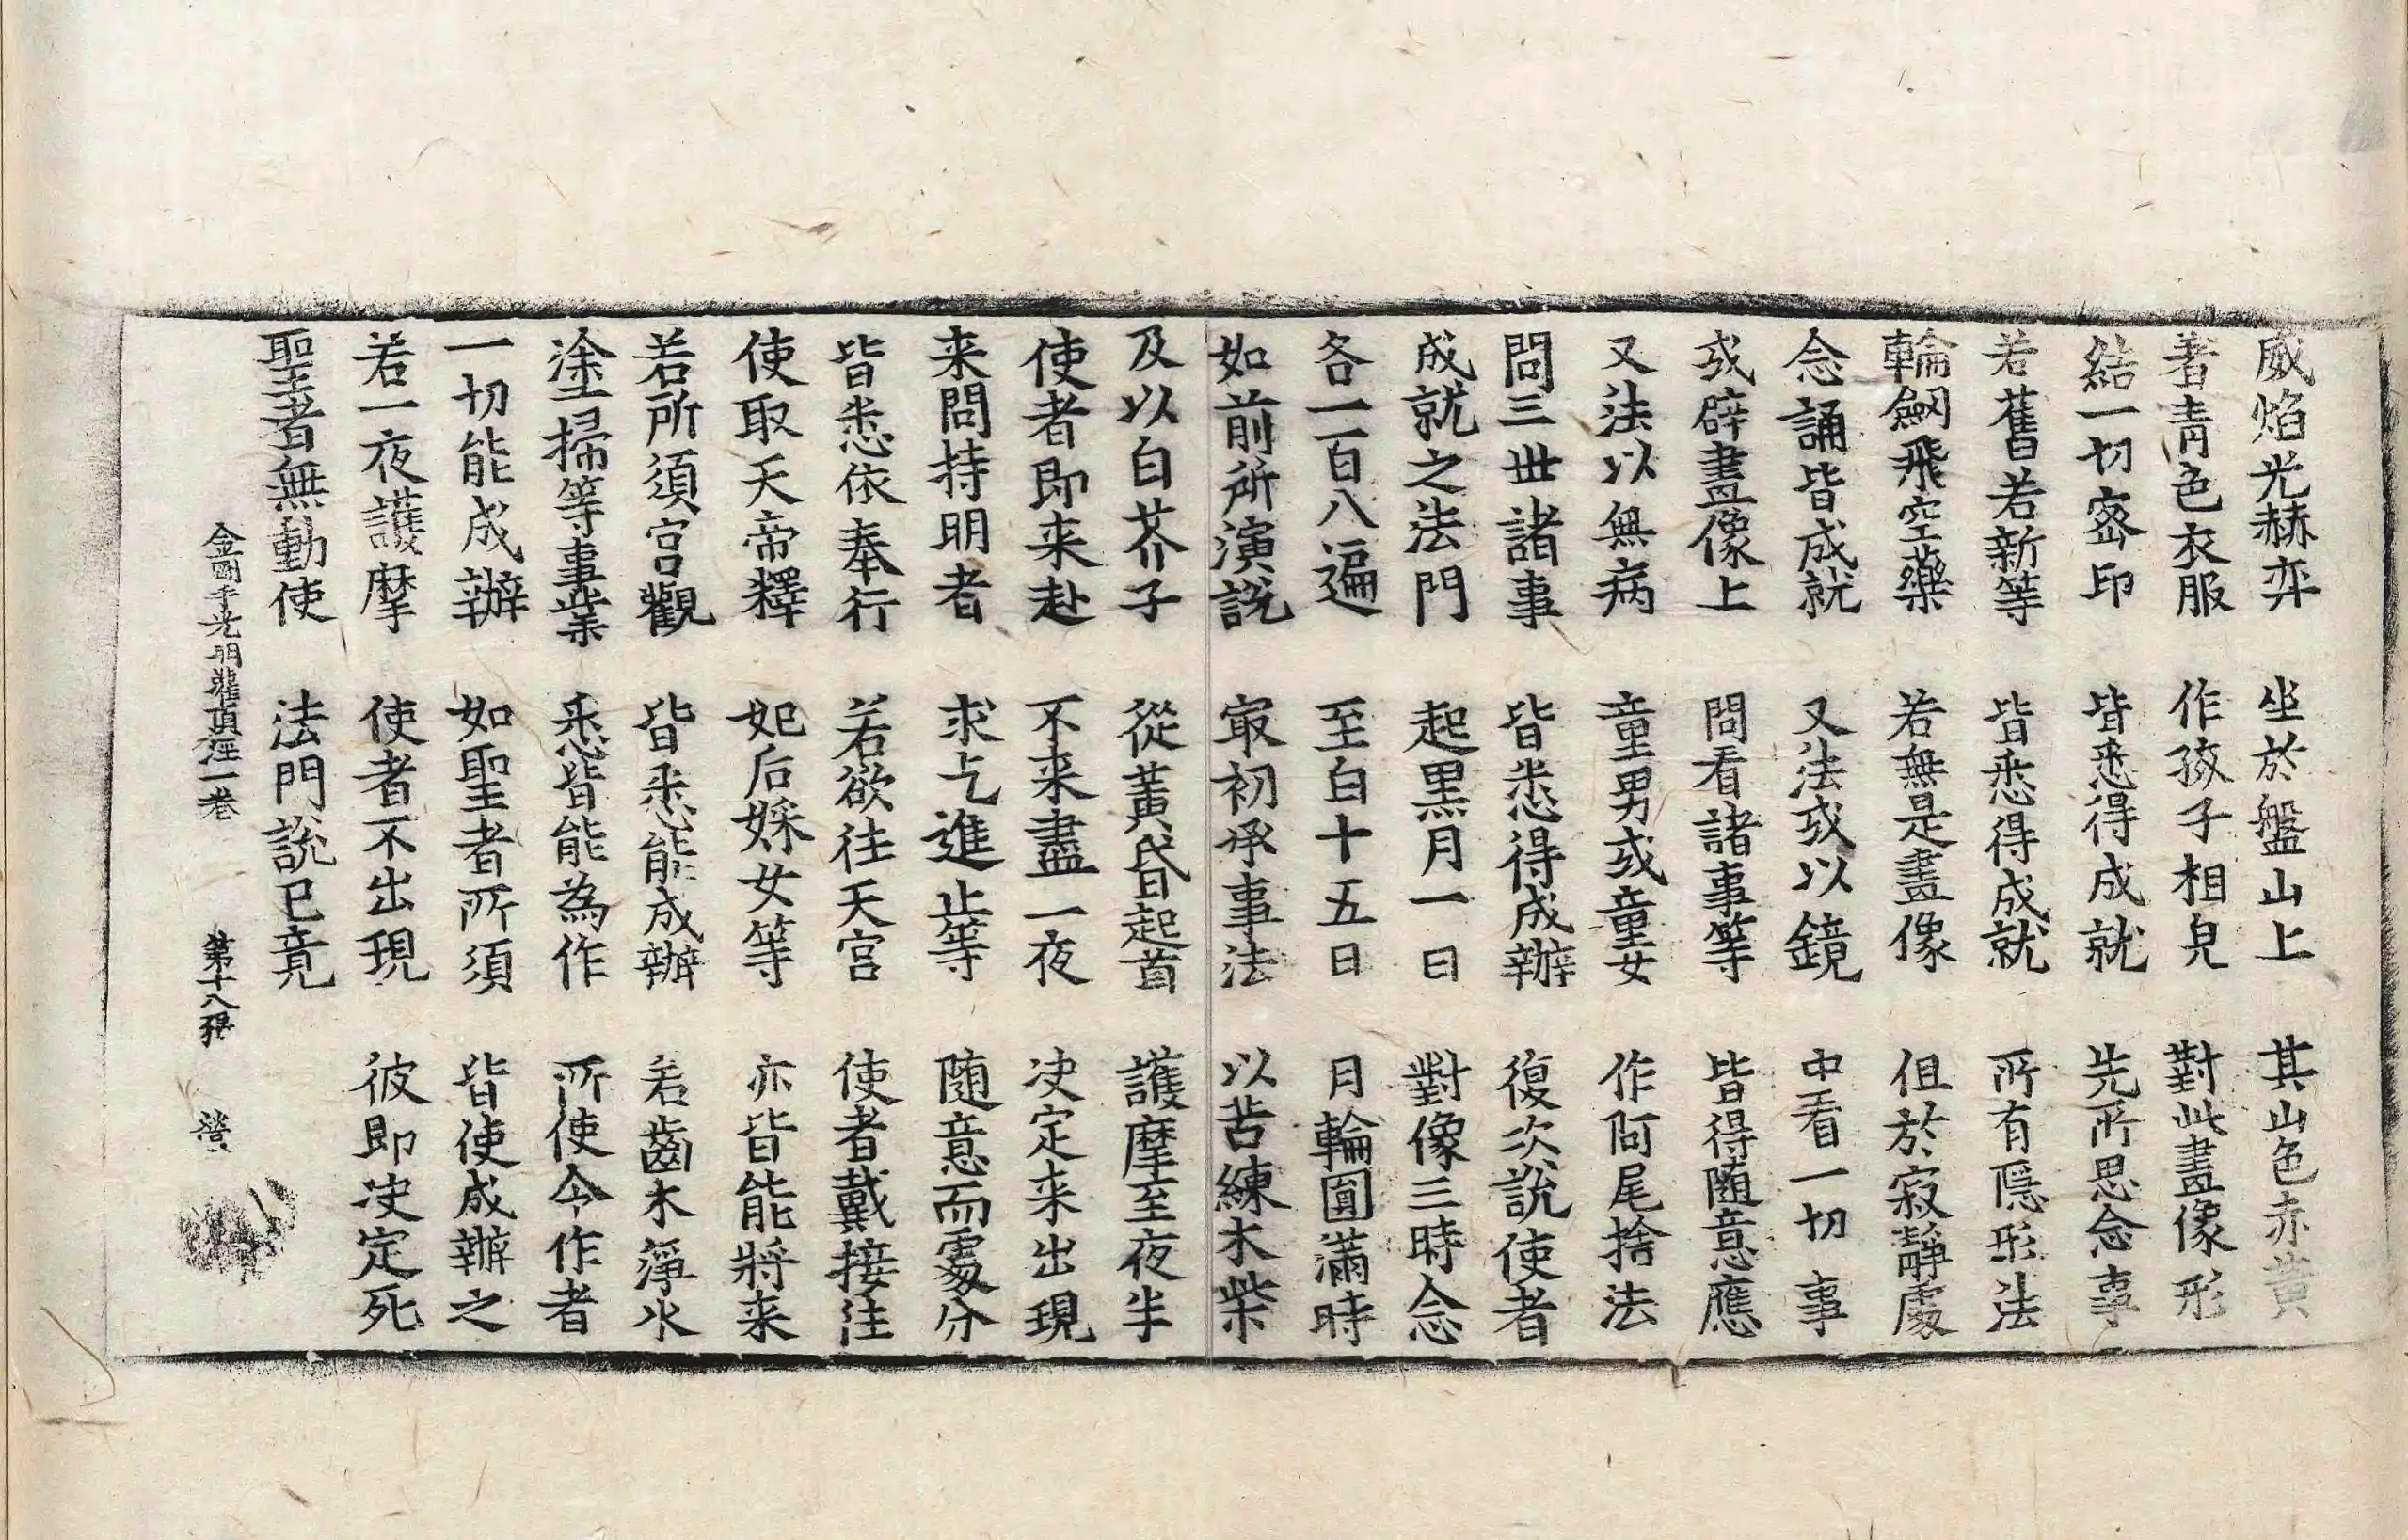 威焰光赫弈　坐於盤山上　其山色赤黄
著青色衣服　作孩子相皃　對此畫像形
結一切宻印　皆悉得成就　先所思念事
若舊若新等　皆悉得成就　所有隱形法
輪劒飛空藥　若無是畫像　但於寂靜處
念誦皆成就　又法或以鏡　中看一切事
或辟畫像上　問看諸事等　皆得随意應
又法以無病　童男或童女　作阿尾捨法
問三世諸事　皆悉得成辦　復次說使者
成就之法門　起黒月一日　對像三時念
各一百八遍　至白十五日　月輪圓滿時
如前所演説　㝡初承事法　以苦練木柴
及以白芥子　從黃昏起首　護摩至夜半
使者即来赴　不来盡一夜　决定来出現
来問持明者　求乞進止等　随意而處分
皆悉依奉行　若欲往天宮　使者戴接往
使取天帝釋　妃后婇女等　亦皆能將来
若所須宫觀　皆悉能成辦　若齒木淨水
塗掃等事業　悉皆能為作　所使令作者
一切能成辦　如聖者所須　皆使成辦之
若一夜護摩　使者不出現　彼即决定死
聖者無動使　法門說已竟
金剛手光明灌頂經一卷　第十八張